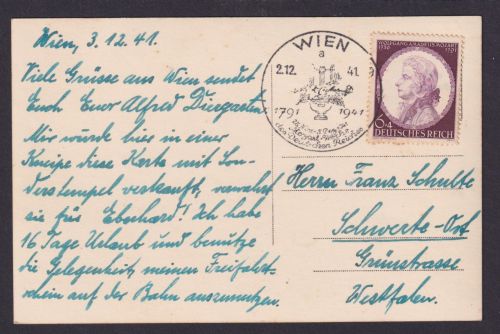 Wien, 3.12.41.
Viele Grüsse aus Wien sendet
Euch Euer Alfred
Mir würde hier in einer
Kneipe diese Karte mit Son-
derstempel verkauft, verwahrt
sie für Eberhard! Ich habe
16 Tage Urlaub und benütze
die Gelegenheit, meinen Freifahrt-
schein auf der Bahn auszunutzen.
WIEN
a
2.12. 41
1791 1941
des Deutschen Reiches
WOLFGANG AMADEUS MOZART
1756 1791
6+4
DEUTSCHES REICH
Herrn Franz Schulte
Schwerte-Ost
Grünstrasse
Westfalen.